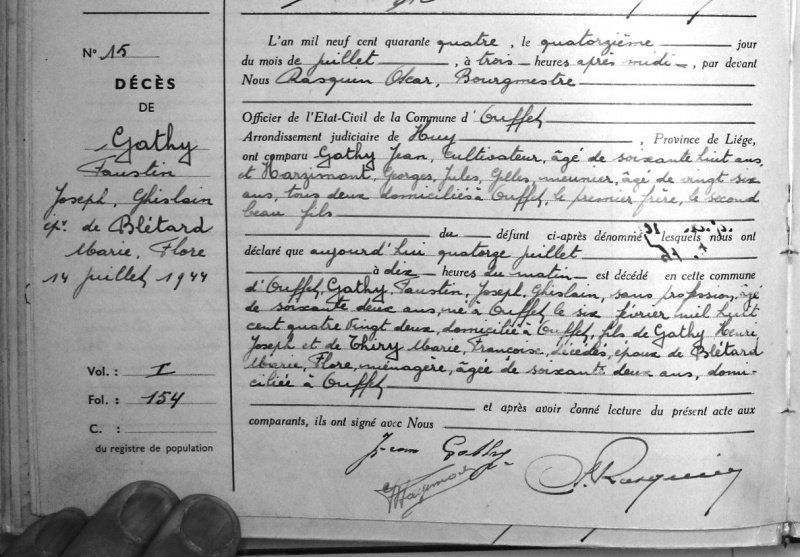 N° 15
DÉCÈS
DE
Gathy
Faustin
Joseph, Ghislain
ép. de Blétard
Marie, Flore
14 juillet 1944
Vol. : I
Fol. : 154
C. :
du registre de population
L'an mil neuf cent quarante quatre, le quatorzième jour
du mois de juillet, à trois heures après midi, par devant
Nous Rasquin Oscar, Bourgmestre
Officier de l'Etat-Civil de la Commune d'Ouffet
Arrondissement judiciaire de Huy, Province de Liége,
ont comparu Gathy Jean, Cultivateur, âgé de soixante huit ans,
et Harzimont, Georges, Jules, Gilles, meunier, âgé de vingt six
ans, tous deux domiciliés à Ouffet, le premier frère, le second
beau fils
du défunt ci-après dénommé lesquels nous ont
déclaré que aujourd'hui quatorze juillet
à dix heures du matin est décédé en cette commune
d'Ouffet, Gathy, Faustin, Joseph, Ghislain, sans profession, âgé
de soixante deux ans, né à Ouffet le six février mil huit
cent quatre vingt deux, domicilié à Ouffet, fils de Gathy Henri
Joseph et de Thiry Marie, Françoise, décédés, époux de Blétard
Marie, Flore, ménagère, âgée de soixante deux ans, domi-
ciliée à Ouffet
et après avoir donné lecture du présent acte aux
comparants, ils ont signé avec Nous
Jean Gathy
Rasquin